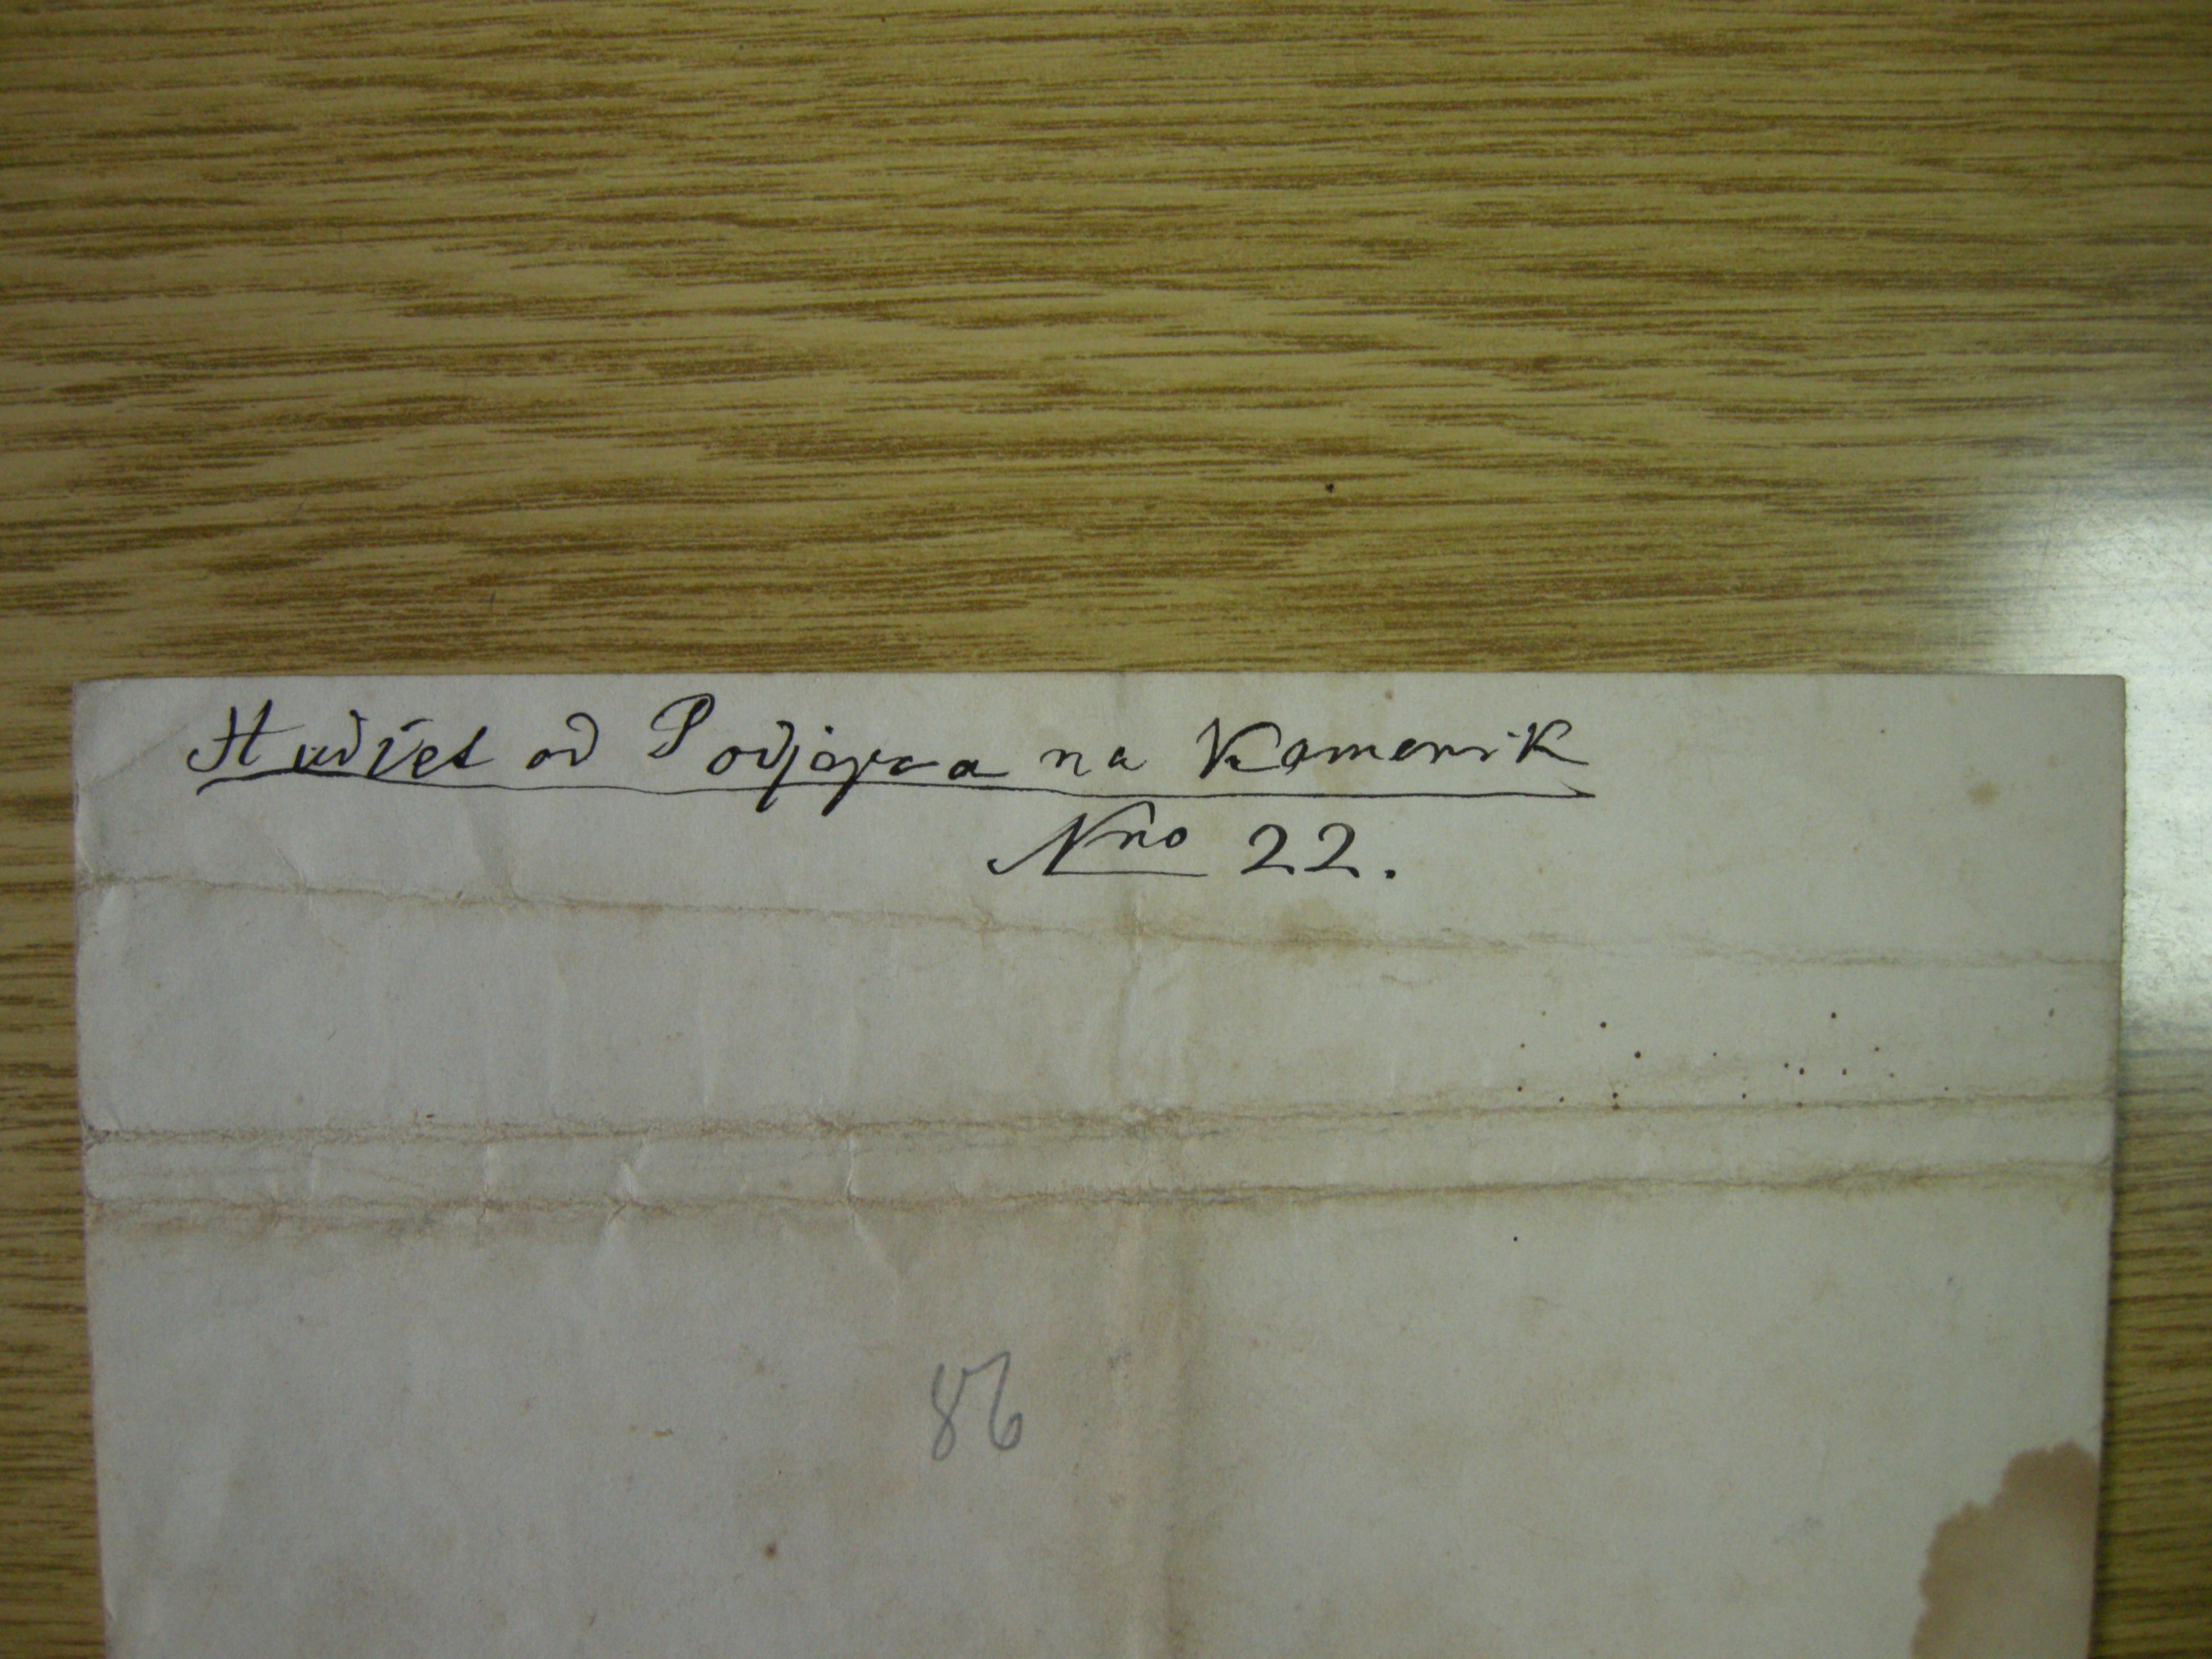 Hudžet od Podjajaca na Kamenik
Nro 22.
86